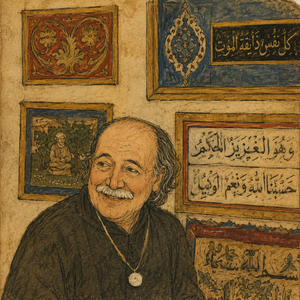 كل نفس ذايقة الموت
وهو العزيز الحكيم
حسبنا الله ونعم الوكيل